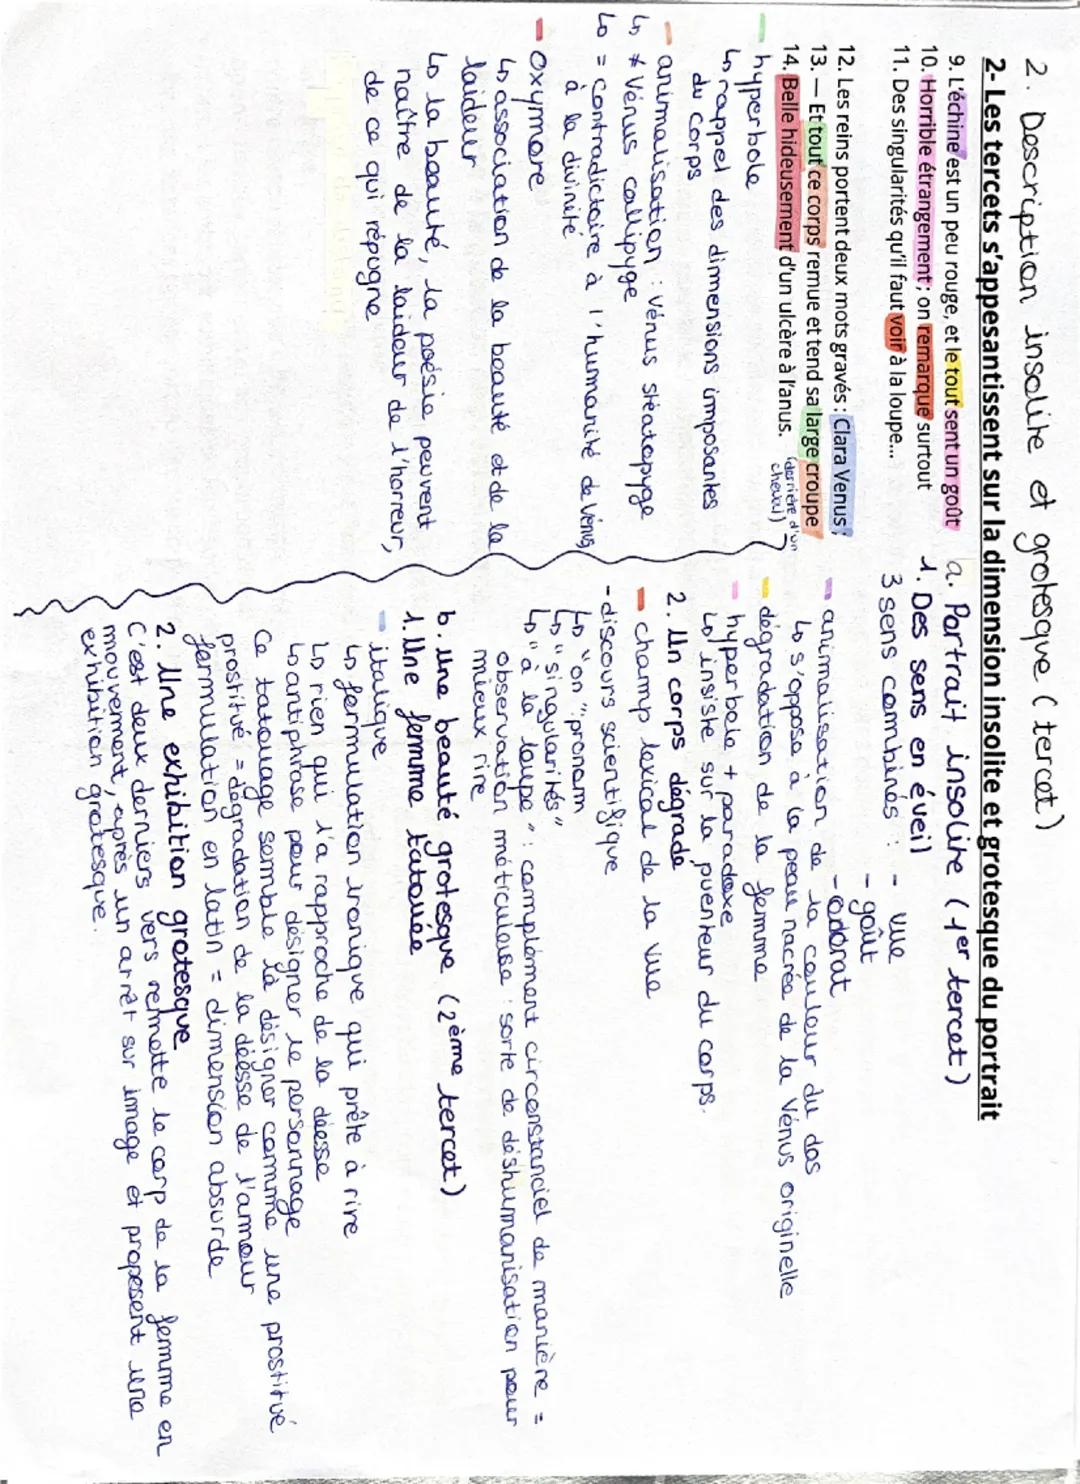 2. Description insolite et grotesque (tercet)
2- Les tercets s'appesantissent sur la dimension insolite et grotesque du portrait
9. L'échine est un peu rouge, et le tout sent un goût
10. Horrible étrangement ; on remarque surtout
11. Des singularités qu'il faut voir à la loupe...
12. Les reins portent deux mots gravés : Clara Venus ;
13. — Et tout ce corps remue et tend sa large croupe
14. Belle hideusement d'un ulcère à l'anus.
(derrière d'un
cheval)
hyperbole
↳ rappel des dimensions imposantes
du corps
animalisation : Vénus stéatopyge
↳ ≠ Vénus callipyge
↳ = contradictoire à l'humanité de Vénus,
à la divinité
oxymore
↳ association de la beauté et de la
laideur
↳ la beauté, la poésie peuvent
naître de la laideur de l'horreur,
de ce qui répugne
a. Portrait insolite (1er tercet)
1. Des sens en éveil
3 sens combinés : - vue
- goût
- odorat
animalisation de la couleur du dos
↳ s'oppose à la peau nacrée de la Vénus originelle
dégradation de la femme
hyperbole + paradoxe
↳ insiste sur la puenteur du corps.
2. Un corps dégradé
champ lexical de la vue
- discours scientifique
↳ "on" : pronom
↳ "singularités"
↳ "à la loupe" : complément circonstanciel de manière =
observation méticuleuse : sorte de déshumanisation pour
mieux rire
b. Une beauté grotesque (2ème tercet)
1. Une femme tatouée
italique
↳ formulation ironique qui prête à rire
↳ rien qui l'a rapproche de la déesse
↳ antiphrase pour désigner le personnage
Ce tatouage semble la désigner comme une prostitué
prostitué = dégradation de la déesse de l'amour
formulation en latin = dimension absurde
2. Une exhibition grotesque
C'est deux derniers vers remette le corp de la femme en
mouvement, après un arrêt sur image et proposent une
exhibition grotesque.